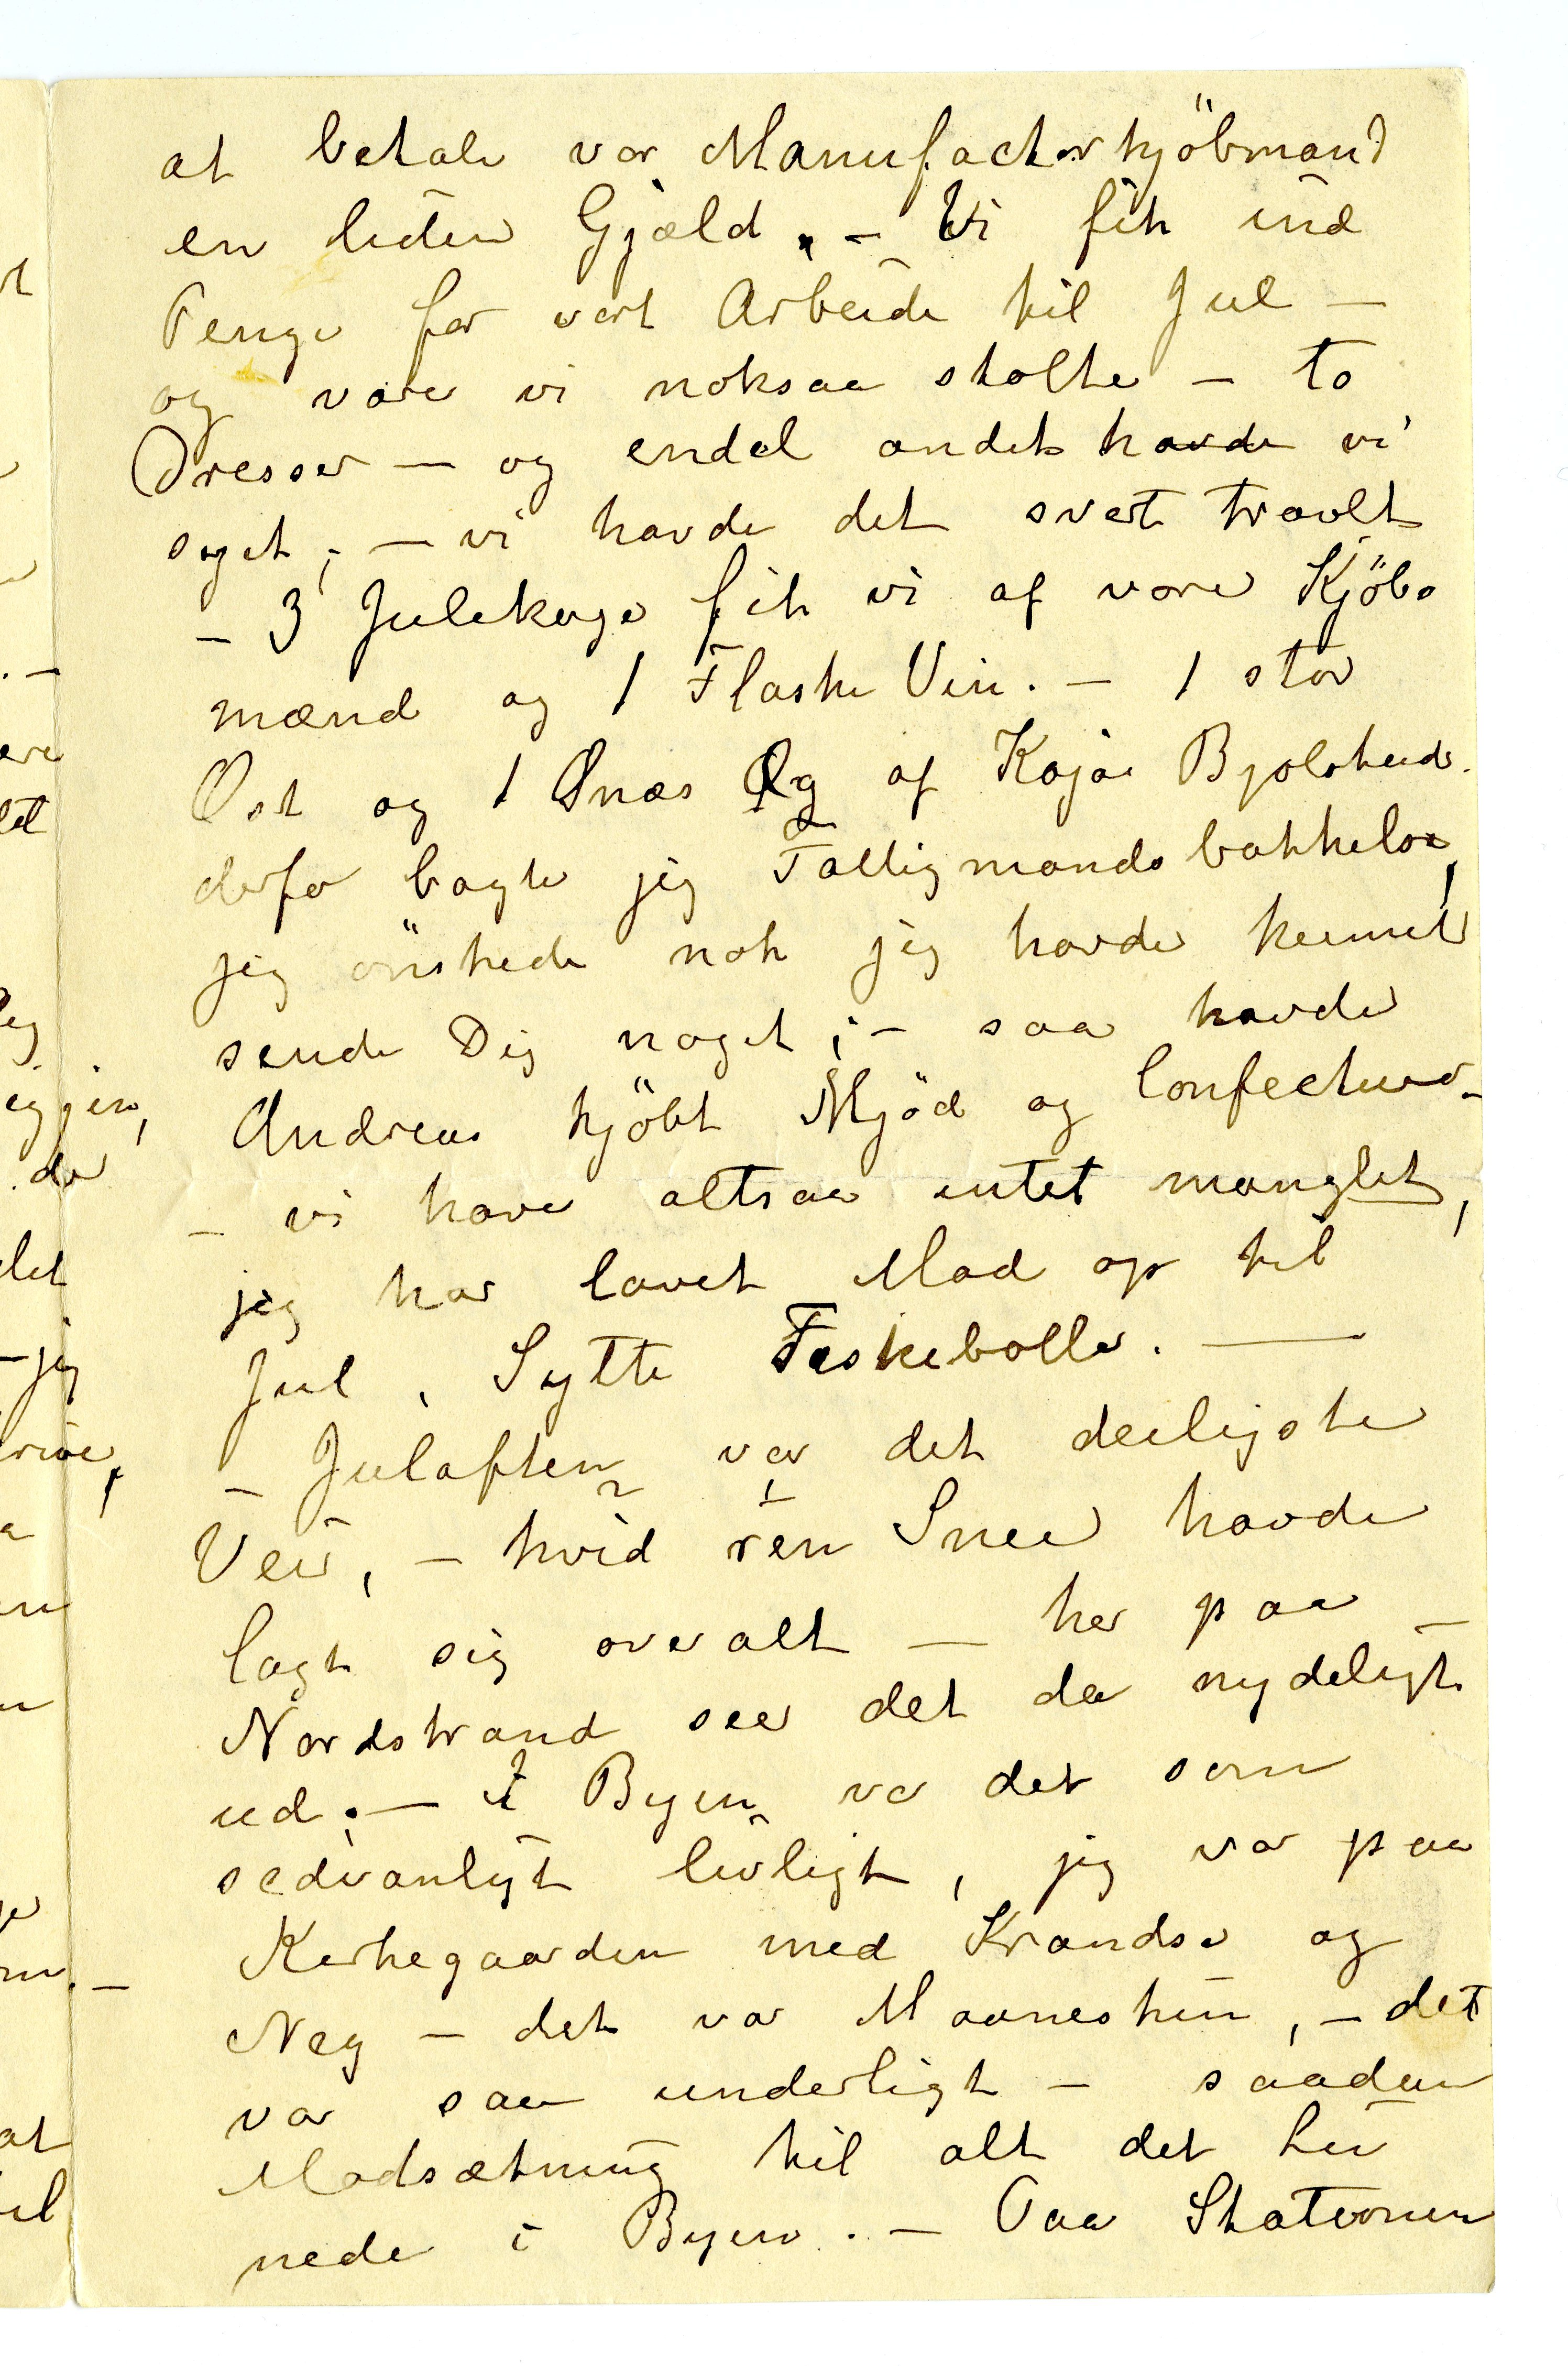 at betale vor Manufacturkjöbmand
en liden Gjæld. – Vi fik ind
Penge for vort Arbeide til Jul –
og vare vi noksaa stolte – to
Dresser – og endel andet havde vi
syet; – vi havde det svert travlt
– 3 Julekage fik vi af vore Kjöb
mænd og 1 Flaske Vin. – 1 stor
Ost og 1 Snes Æg af Kajsa
derfor bagte jeg Fattigmandsbakkelse,
jeg önskede nok jeg havde kunnet
sende Dig noget; – saa havde
Andreas kjöbt Mjöd og Confecturer –
– vi have altsaa intet manglet,
jeg har lavet Mad op til
Jul, Sylte Feskeboller. –
– Julaften var det deiligste
Veir, – hvid ren Snee havde
lagt sig overalt – her paa –
Nordstrand seer det da nydeligt
ud; – I Byen var det som
sedvanligt livligt, jeg var paa
Kerkegaarden med Krandse og
Neg – det var Maaneskin, – det
var saa underligt – saadan
Modsætning til alt det Liv
nede i Byen. – Paa Stationen